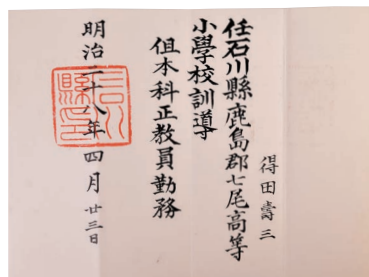 得田壽三
任石川縣鹿島郡七尾高等
小學校訓導
但本科正教員勤務
明治二十八年四月廿三日
石川縣印